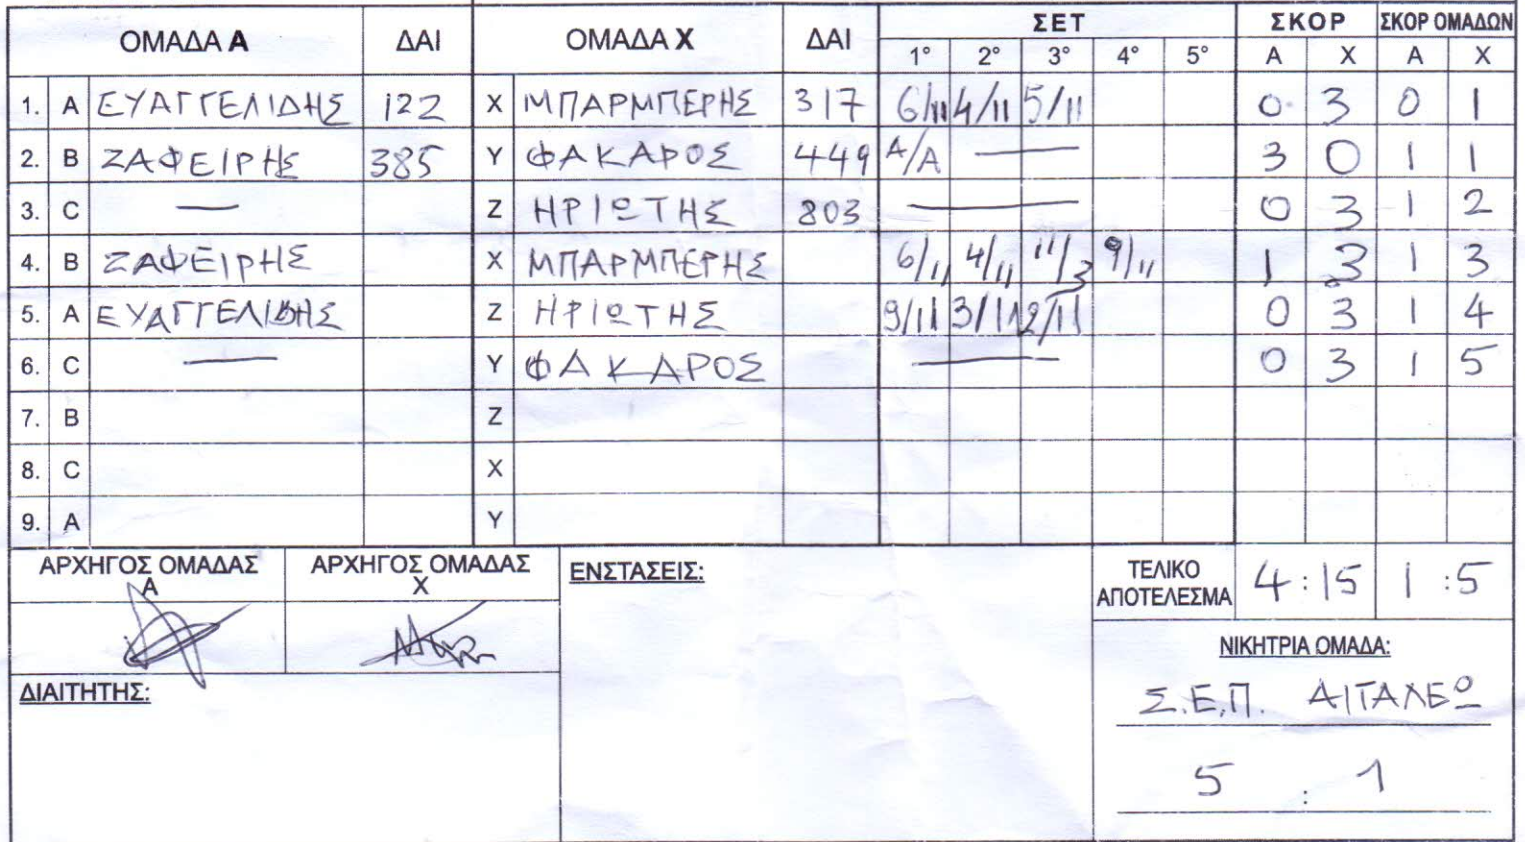 ΟΜΑΔΑ Α ΔΑΙ ΟΜΑΔΑ Χ ΔΑΙ ΣΕΤ ΣΚΟΡ ΣΚΟΡ ΟΜΑΔΩΝ
1° 2° 3° 4° 5° Α Χ Α Χ
1. A ΕΥΑΓΓΕΛΙΔΗΣ 122 X ΜΠΑΡΜΠΕΡΗΣ 317 6/11 4/11 5/11 0 3 0 1
2. B ΖΑΦΕΙΡΗΣ 385 Y ΦΑΚΑΡΟΣ 449 Α/Α — 3 0 1 1
3. C — Z ΗΡΙΩΤΗΣ 803 — 0 3 1 2
4. B ΖΑΦΕΙΡΗΣ X ΜΠΑΡΜΠΕΡΗΣ 6/11 4/11 11/3 9/11 1 3 1 3
5. A ΕΥΑΓΓΕΛΙΔΗΣ Z ΗΡΙΩΤΗΣ 9/11 3/11 2/11 0 3 1 4
6. C — Y ΦΑΚΑΡΟΣ — 0 3 1 5
7. B Z
8. C X
9. A Y
ΑΡΧΗΓΟΣ ΟΜΑΔΑΣ Α ΑΡΧΗΓΟΣ ΟΜΑΔΑΣ Χ ΕΝΣΤΑΣΕΙΣ: ΤΕΛΙΚΟ ΑΠΟΤΕΛΕΣΜΑ 4:15 1:5
ΝΙΚΗΤΡΙΑ ΟΜΑΔΑ:
ΔΙΑΙΤΗΤΗΣ:
Σ.Ε.Π. ΑΙΓΑΛΕΩ
5 : 1